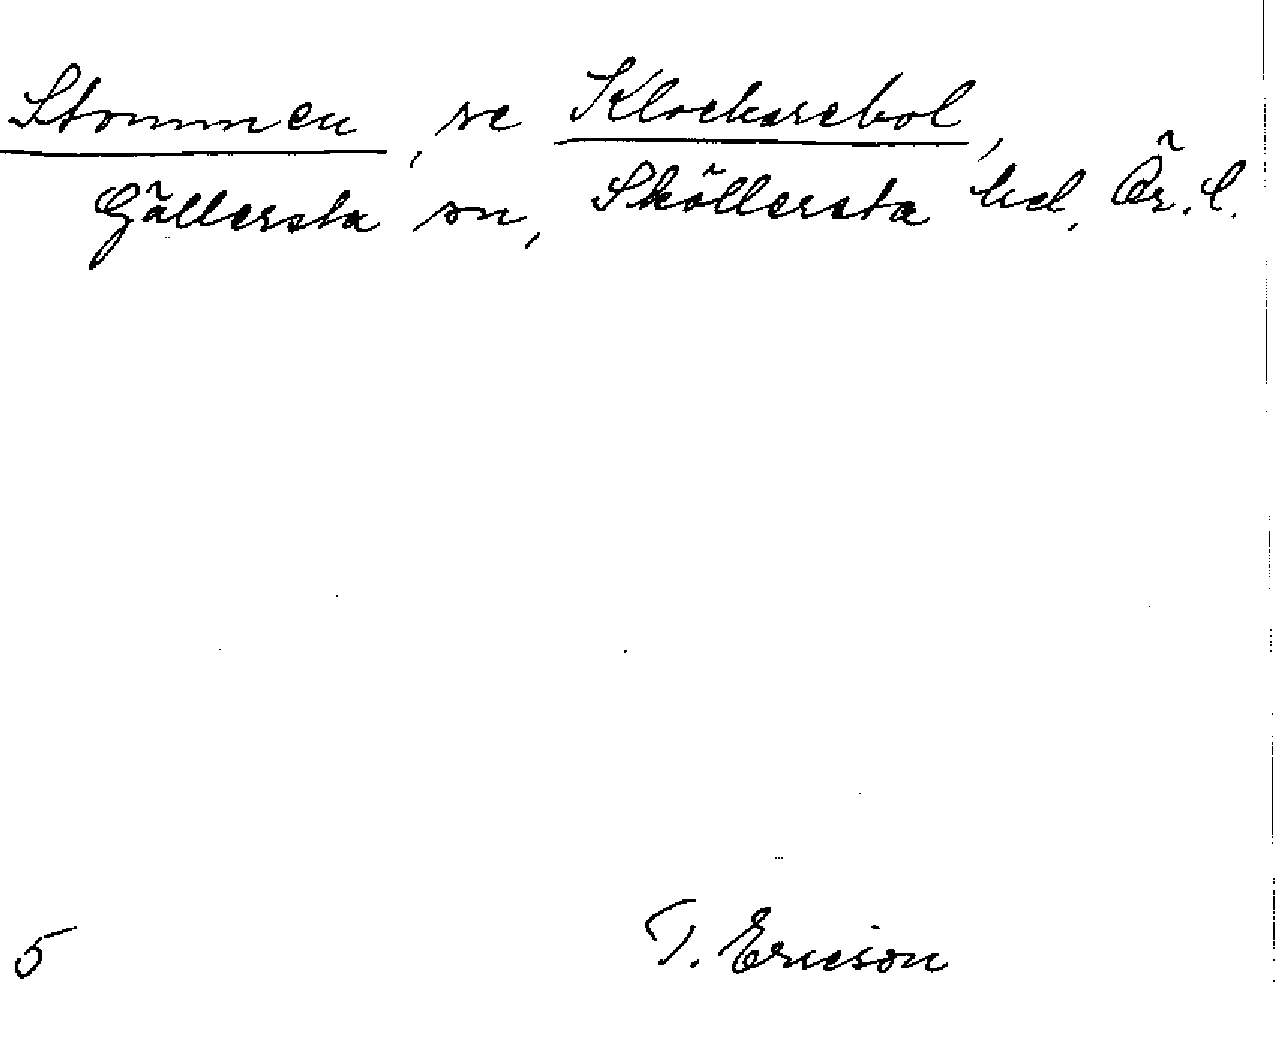 Stommen, se Klockarebol,
Gällersta sn, Sköllersta hd, Ör. l.
5 T. Ericson